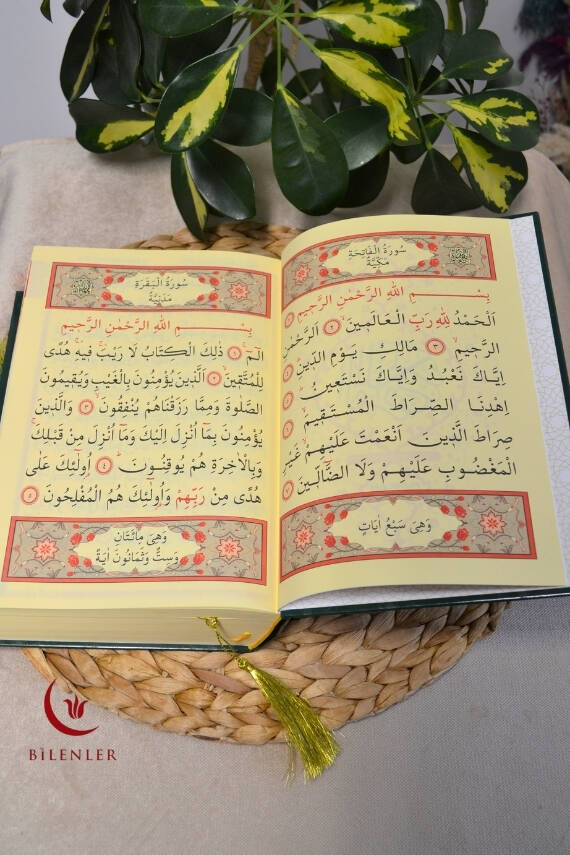 سُورَةُ الْفَاتِحَةِ
مَكِّيَّةٌ
بِسْمِ اللّٰهِ الرَّحْمٰنِ الرَّحٖيمِ ١
اَلْحَمْدُ لِلّٰهِ رَبِّ الْعَالَمٖينَ ٢ اَلرَّحْمٰنِ
الرَّحٖيمِ ٣ مَالِكِ يَوْمِ الدّٖينِ ٤
اِيَّاكَ نَعْبُدُ وَاِيَّاكَ نَسْتَعٖينُ ٥
اِهْدِنَا الصِّرَاطَ الْمُسْتَقٖيمَ ٦
صِرَاطَ الَّذٖينَ اَنْعَمْتَ عَلَيْهِمْ غَيْرِ
الْمَغْضُوبِ عَلَيْهِمْ وَلَا الضَّٓالّٖينَ ٧
وَهِىَ سَبْعُ اٰيَاتٍ
سُورَةُ الْبَقَرَةِ
مَدَنِيَّةٌ
بِسْمِ اللّٰهِ الرَّحْمٰنِ الرَّحٖيمِ
الٓمٓ ١ ذٰلِكَ الْكِتَابُ لَا رَيْبَ فٖيهِ هُدًى
لِلْمُتَّقٖينَ ٢ اَلَّذٖينَ يُؤْمِنُونَ بِالْغَيْبِ وَيُقٖيمُونَ
الصَّلٰوةَ وَمِمَّا رَزَقْنَاهُمْ يُنْفِقُونَ ٣ وَالَّذٖينَ
يُؤْمِنُونَ بِمَٓا اُنْزِلَ اِلَيْكَ وَمَٓا اُنْزِلَ مِنْ قَبْلِكَ
وَبِالْاٰخِرَةِ هُمْ يُوقِنُونَ ٤ اُو۬لٰٓئِكَ عَلٰى
هُدًى مِنْ رَبِّهِمْ وَاُو۬لٰٓئِكَ هُمُ الْمُفْلِحُونَ ٥
وَهِىَ مِائَتَانِ
وَسِتٌّ وَثَمَانُونَ اٰيَةً
BİLENLER